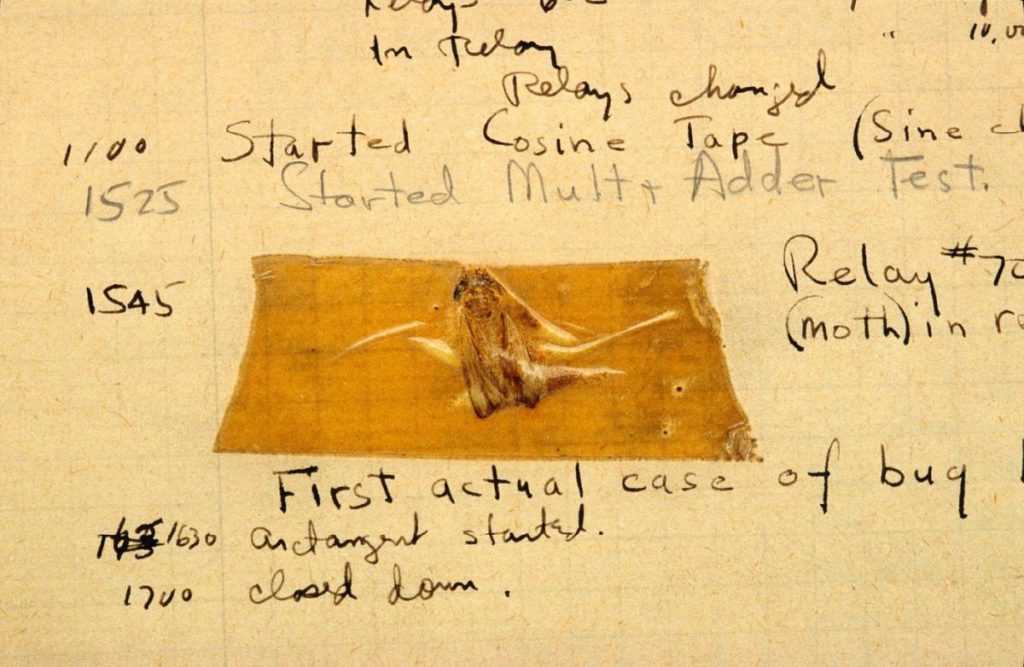 In Relay
10,00
Relays changed
1100 Started Cosine Tape (Sine
1525 Started Mult + Adder Test.
1545 Relay #70
(moth) in
First actual case of bug
1630 arctangent started.
1700 closed down.